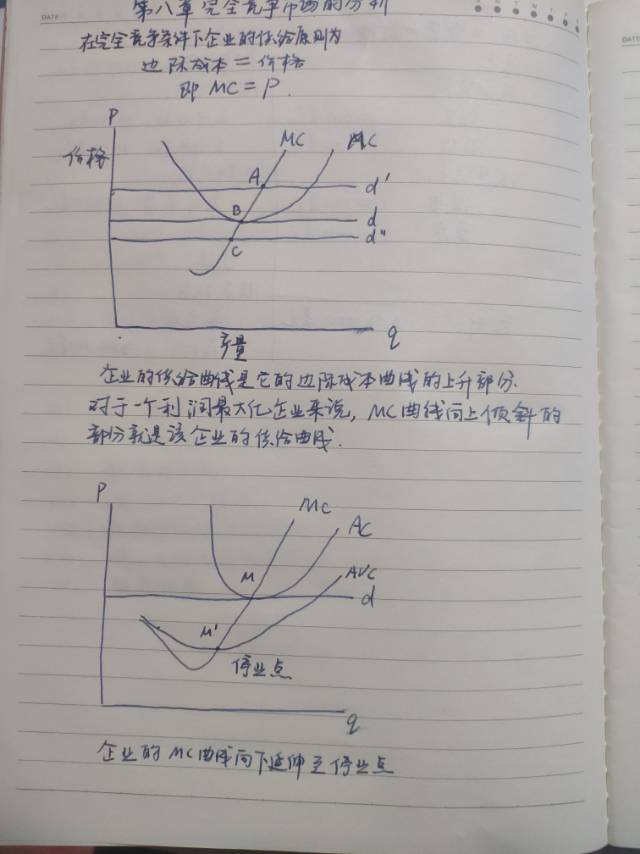 第八章完全竞争市场的分析
DATE
在完全竞争条件下企业的供给原则为
边际成本=价格
即 MC=P.
P
MC
AC
价格
A
d'
B
d
d"
C
产量
q
企业的供给曲线是它的边际成本曲线的上升部分.
对于一个利润最大化企业来说, MC曲线向上倾斜的
部分就是该企业的供给曲线.
P
MC
AC
AVC
M
d
M'
停业点
q
企业的MC曲线向下延伸至停业点